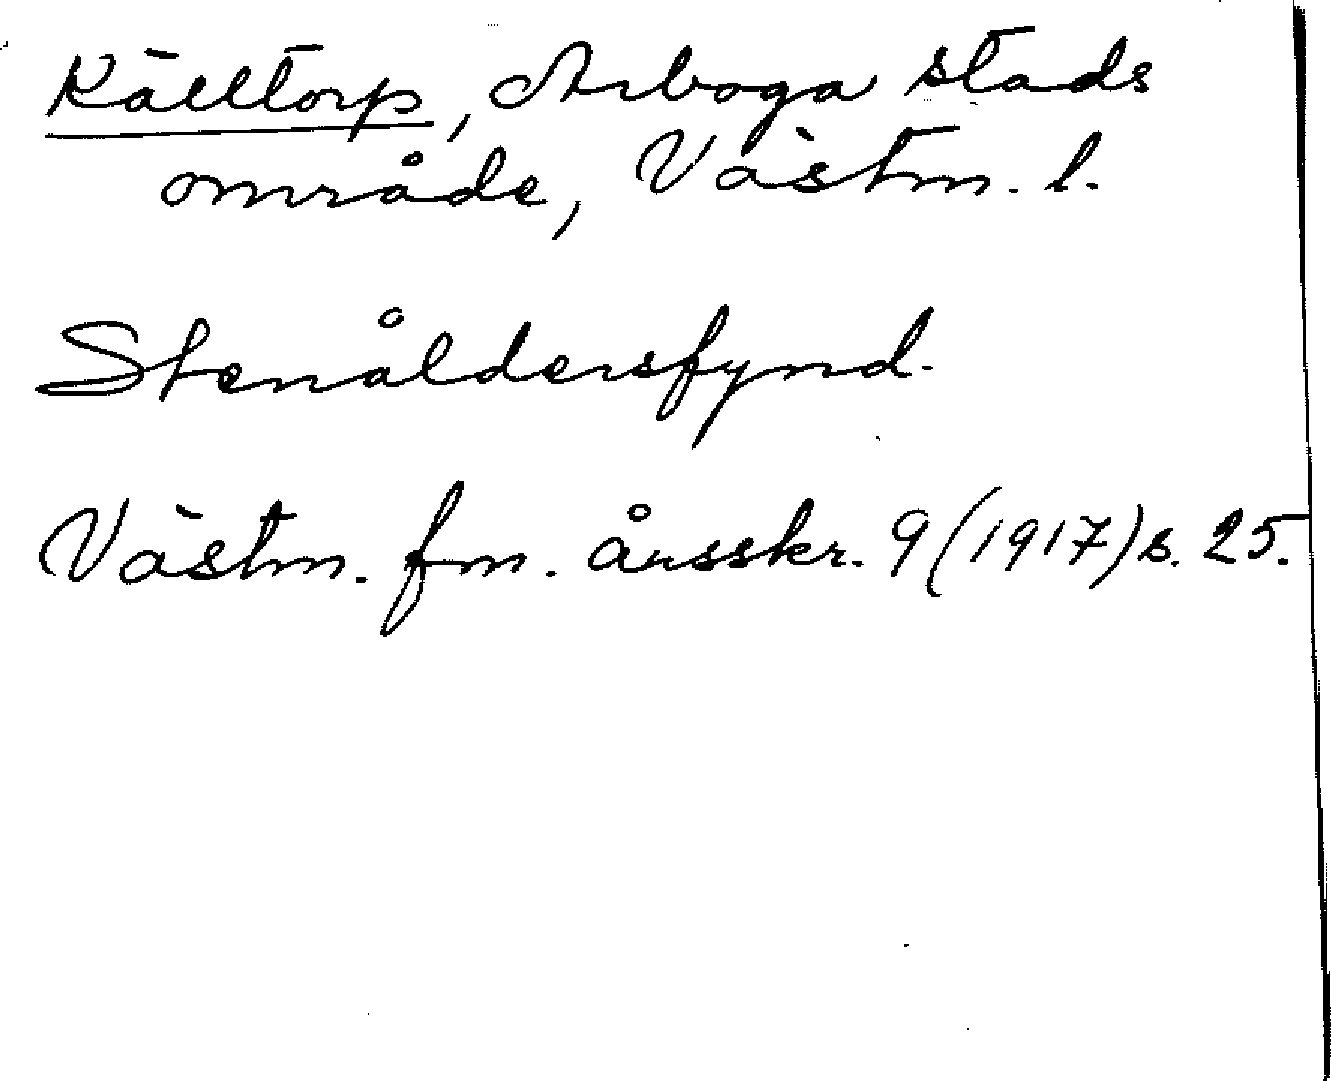 Källtorp, Arboga stads
område, Västm. l.
Stenåldersfynd.
Västm. fm. årsskr. 9 (1917) s. 25.